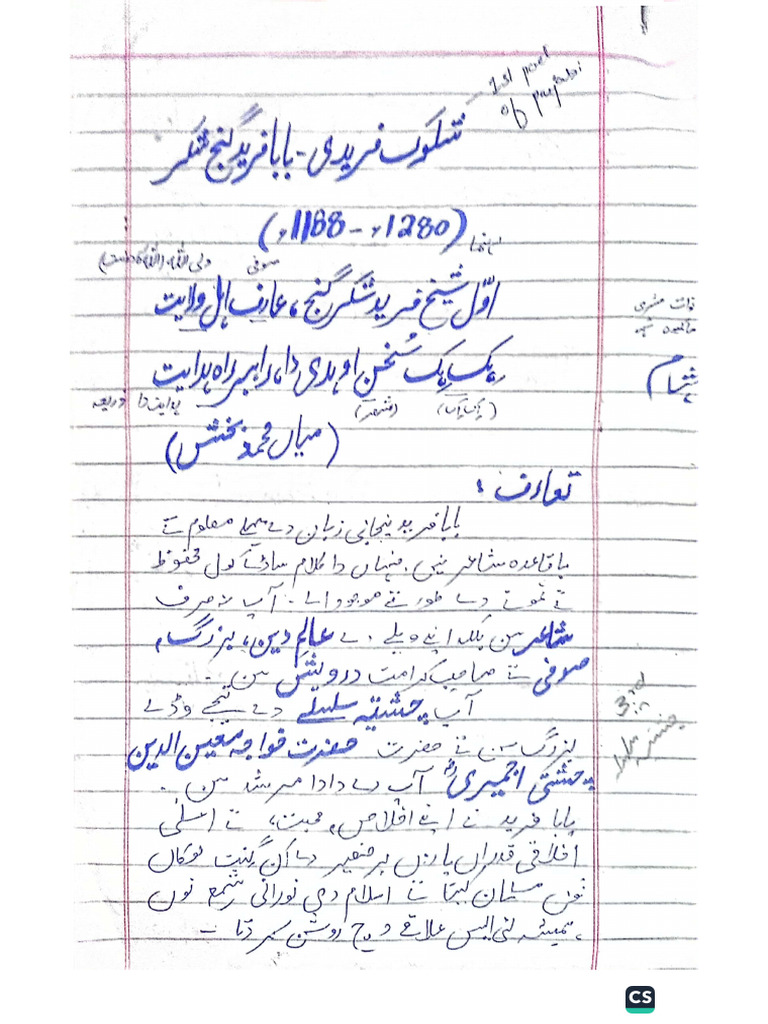 1st poet
of punjabi
شلوک فریدی - بابا فرید گنج شکر
(1188ء - 1280ء)
صوفی ولی اللہ
اوّل شیخ فرید شکر گنج، عارف اہل ولایت
ہک ہک سُخن اوہدی دا، راہبر راہ ہدایت
ہدایت دا ذریعہ
(میاں محمد بخش)
تعارف:
بابا فرید پنجابی زبان دے پہلے معلوم تے
باقاعدہ شاعر نیں. جنہاں دا کلام ساڈے کول محفوظ
تے نمونے دے طور تے موجود اے. آپ نہ صرف
شاعر سن بلکہ اپنے ویلے دے عالم دین، بزرگ،
صوفی تے صاحب کرامت درویش سن.
آپ چشتیہ سلسلے دے تیجے وڈے
بزرگ سن تے حضرت خواجہ معین الدین
چشتی اجمیری آپ دے دادا مرشد سن.
3rd in
چشتیہ سلسلہ
بابا فرید نے اپنے اخلاص، محبت، تے اسلامی
اخلاقی قدراں پاروں برصغیر دے ان گنت لوکاں
نوں مسلمان کیتا تے اسلام دی نورانی شمع نوں
ہمیشہ لئی ایس علاقے وچ روشن کر دتا-
CS